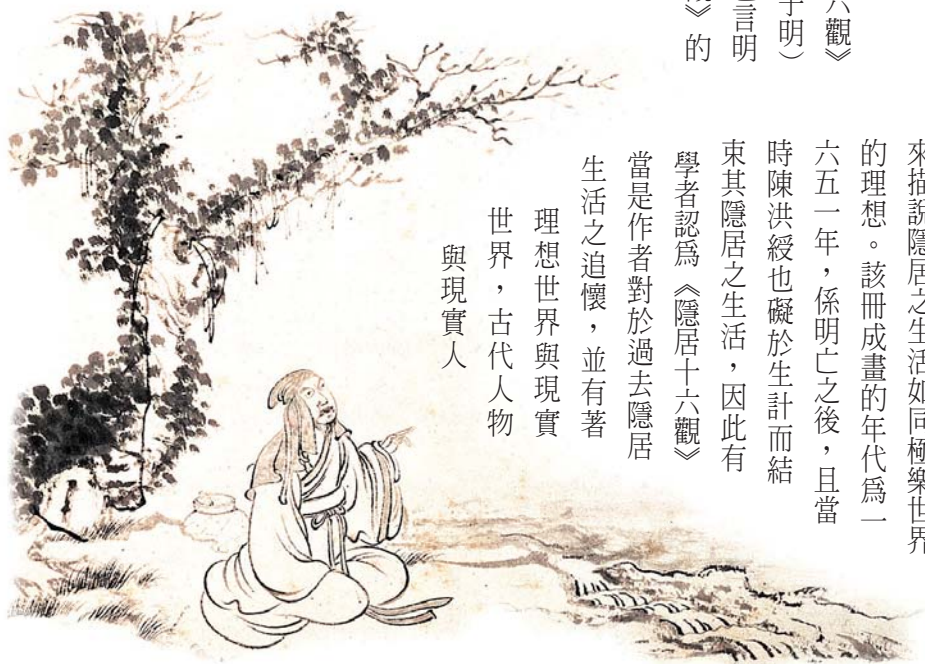 六觀》
明）
言明
》的
來描說隱居之生活如同極樂世界
的理想。該冊成畫的年代爲一
六五一年，係明亡之後，且當
時陳洪綬也礙於生計而結
束其隱居之生活，因此有
學者認爲《隱居十六觀》
當是作者對於過去隱居
生活之追懷，並有著
理想世界與現實
世界，古代人物
與現實人